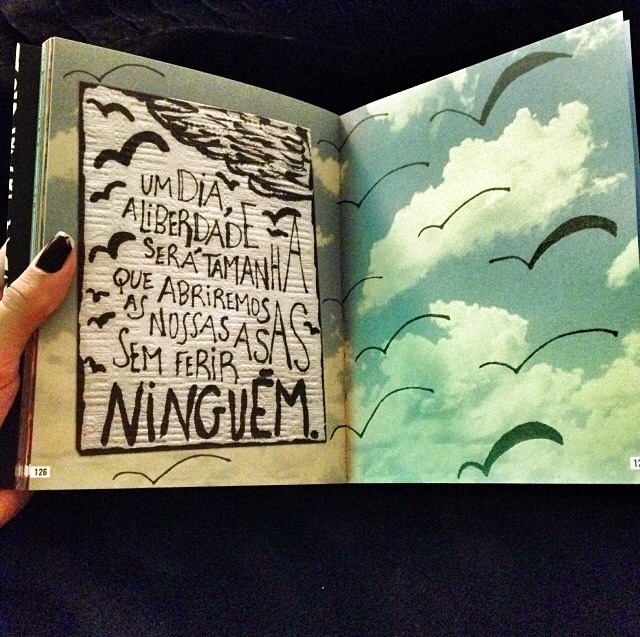 UM DIA,
A LIBERDADE
SERÁ TAMANHA
QUE ABRIREMOS
AS NOSSAS ASAS
SEM FERIR
NINGUÉM.
126